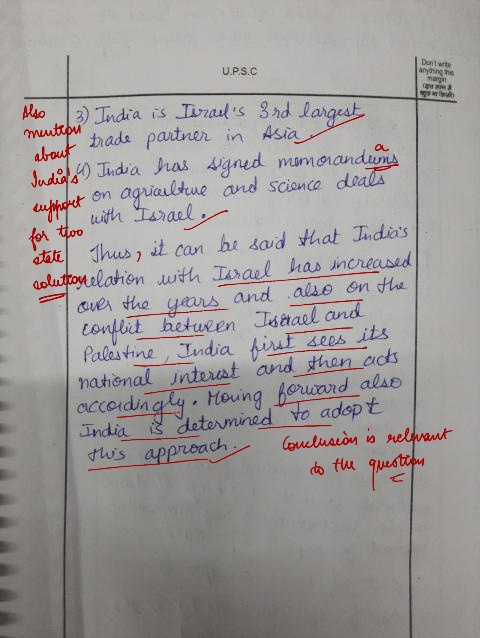 U.P.S.C
Don't write
anything this
margin
(इस भाग में
कुछ ना लिखें)
Also
mention
about
India's
support
for two
state
solution
3) India is Israel's 3rd largest
trade partner in Asia.
4) India has signed memorandums
a
on agriculture and science deals
with Israel.
Thus, it can be said that India's
relation with Israel has increased
over the years and also on the
conflict between Israel and
Palestine, India first sees its
national interest and then acts
accordingly. Moving forward also
India is determined to adopt
this approach.
Conclusion is relevant
to the question